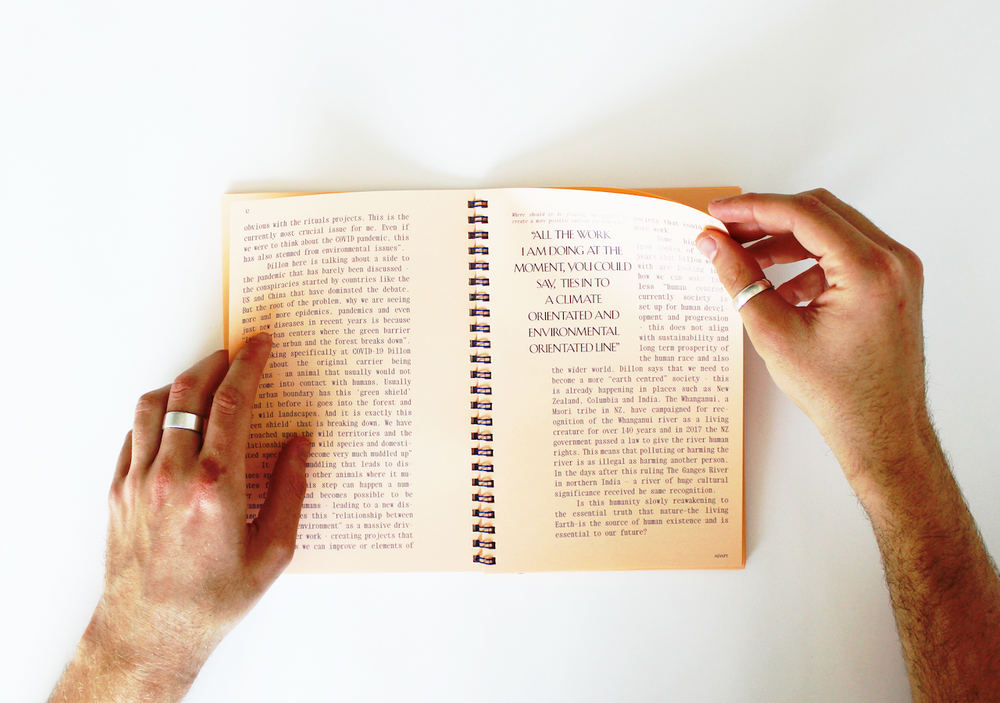 obvious with the rituals projects. This is the
currently most crucial issue for me. Even if
we were to think about the COVID pandemic, this
has also stemmed from environmental issues".
Dillon here is talking about a side to
the pandemic that has barely been discussed -
the conspiracies started by countries like the
US and China that have dominated the debate.
But the root of the problem, why we are seeing
more and more epidemics, pandemics and even
just new diseases in recent years is because
urban centers where the green barrier
the urban and the forest breaks down".
specifically at COVID-19 Dillon
about the original carrier being
- an animal that usually would not
come into contact with humans. Usually
urban boundary has this 'green shield'
it before it goes into the forest and
wild landscapes. And it is exactly this
shield' that is breaking down. We have
upon the wild territories and the
wild species and domesti-
become very much muddled up"
muddling that leads to dis-
other animals where it mu-
this step can happen a num-
and becomes possible to be
- leading to a new dis-
this "relationship between
environment" as a massive driv-
work - creating projects that
we can improve or elements of
"ALL THE WORK
I AM DOING AT THE
MOMENT, YOU COULD
SAY, TIES IN TO
A CLIMATE
ORIENTATED AND
ENVIRONMENTAL
ORIENTATED LINE"
society that could
work.
Some
how we can
less "human
currently society is
set up for human devel-
opment and progression
- this does not align
with sustainability and
long term prosperity of
the human race and also
the wider world. Dillon says that we need to
become a more "earth centred" society - this
is already happening in places such as New
Zealand, Columbia and India. The Whanganui, a
Maori tribe in NZ, have campaigned for rec-
ognition of the Whanganui river as a living
creature for over 140 years and in 2017 the NZ
government passed a law to give the river human
rights. This means that polluting or harming the
river is as illegal as harming another person.
In the days after this ruling The Ganges River
in northern India - a river of huge cultural
significance received he same recognition.
Is this humanity slowly reawakening to
the essential truth that nature-the living
Earth-is the source of human existence and is
essential to our future?